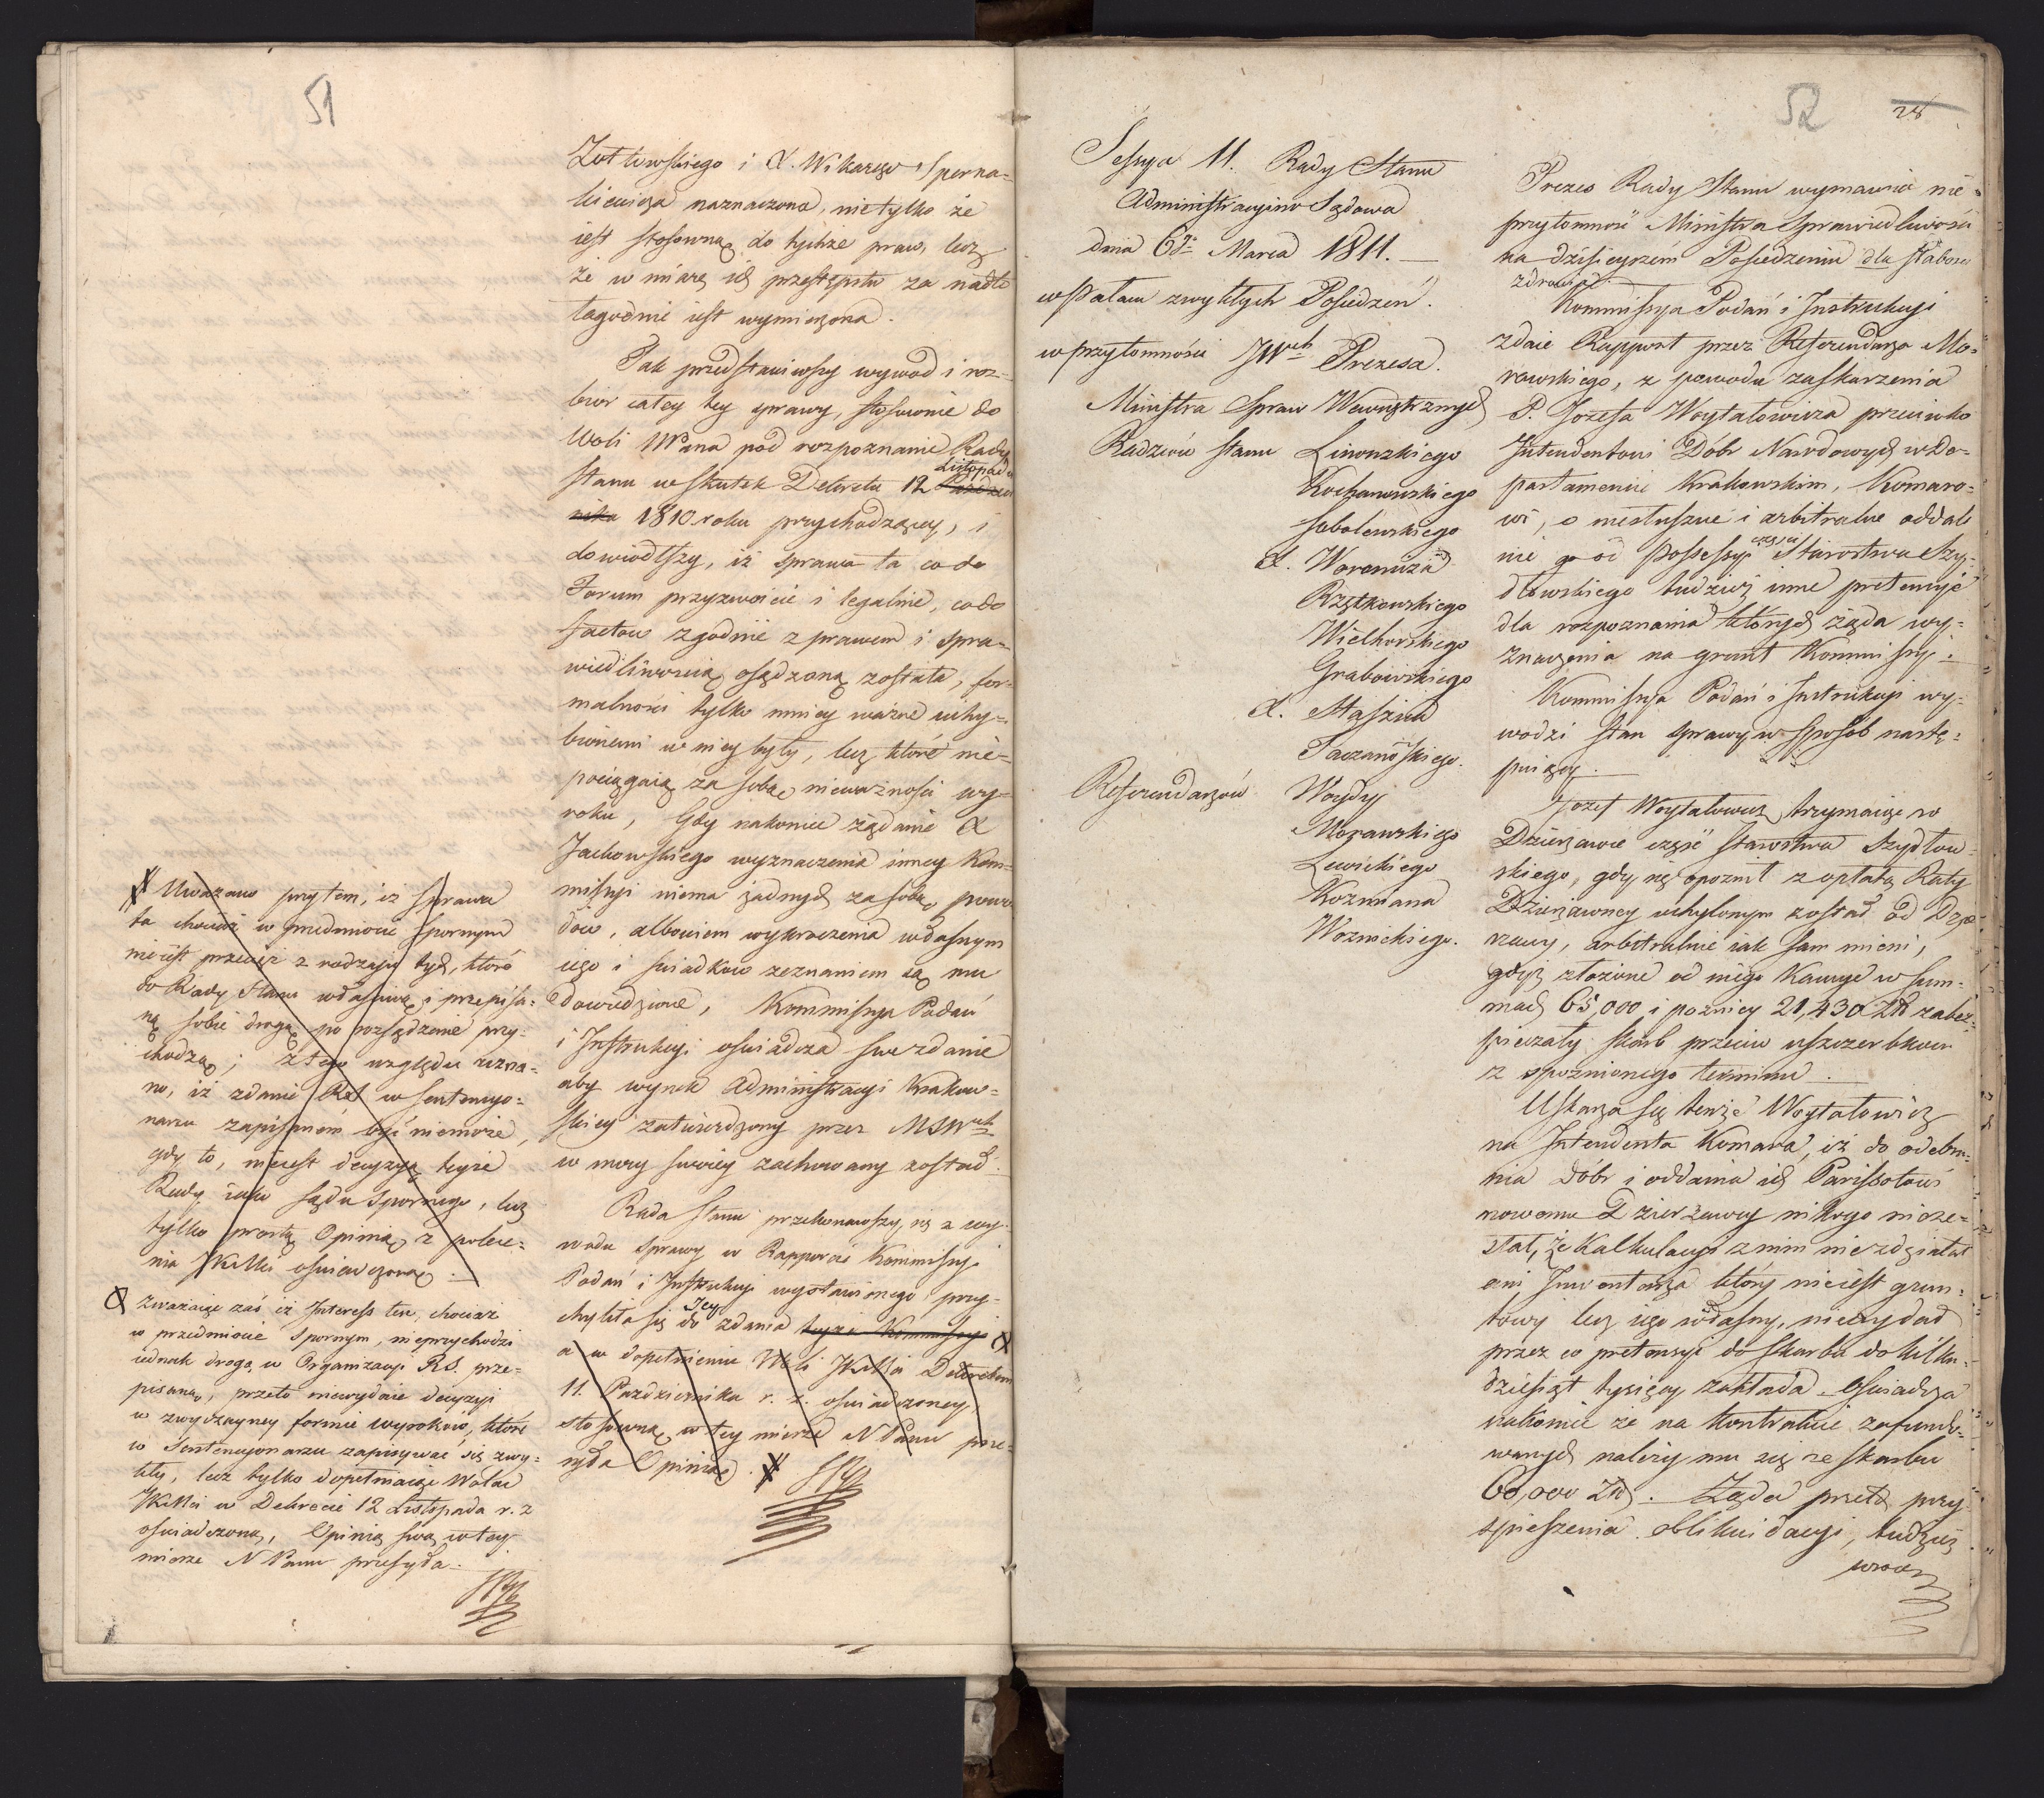 51
Zołłowskiego i X. Wikarego Sperna=
kiewicza naznaczona, nietylko że
iest stosowną do tychże praw, lecz
że w miarę ich przestępstw za nadto
łagodnie iest wymierzona.
Tak przedstawiwszy wywod i roz=
bior całey tey sprawy, stosownie do
Woli NPana pod rozpoznanie Rady
Stanu w skutek Dekretu 12 Listopada Paździer
nika 1810 roku przychodzącey, i
dowiodłszy, iż sprawa ta co do
Forum przyzwoicie i legalnie, co do
factow zgodnie z prawem i spra=
wiedliwością osądzoną została, for=
malności tylko mniey ważne uchy=
bionemi w niey były, lecz które nie=
pociągaią za sobą nieważności wy=
roku, Gdy nakoniec żądanie X
Jachowskiego wyznaczenia inney Kom=
missyi niema żadnych za sobą powo
dow, albowiem wykroczenia własnym
iego i swiadkow zeznaniem są mu
dowiedzione, Kommissya Podań
i Instrukcyi oświadcza swe zdanie
aby wyrok Administracyi Krakow=
skiey zatwierdzony przez MSWch
w mocy swoiey zachowany został.
Rada Stanu przekonawszy się z wy=
wodu sprawy w Rapporcie Kommissyi
Podań i Instrukcyi wystawionego, przy=
chyliła się do Jey zdania teyże Kommissyi
a w dopełnieniu Woli JKMci Dekretem
11. Pazdziernika r. z. oświadczoney
stosowną w tey mierze NPanu prze=
syła Opinią.
Uważano przytem, iż sprawa
ta chociaż w przedmiocie spornym
nieiest przecież z rodzaiu tych, które
do Rady Stanu właściwą i przepisa=
ną sobie drogą po rozsądzenie przy=
chodzą; z tego względu uzna=
no, iż zdanie Rs w sentencyo=
narzu zapisanem być niemoże,
gdy to, nieiest decyzyą teyże
Rady iako Sądu spornego, lecz
tylko prostą Opinią z polece=
nia JKMci oświadczoną.
Zważaiąc zaś iż Interess ten, chociaż
w przedmiocie spornym, nieprzychodzi
iednak drogą w Organizacyi RS. prze=
pisaną, przeto niewydaie decyzyi
w zwyczayney formie wyrokow, które
w Sentencyonarzu zapisywać się zwy=
kły, lecz tylko dopełniaiąc Wolą
JKMci w Dekrecie 12 Listopada r. z
oświadczoną, Opinią swą w tey
mierze NPanu przesyła.
52
28
Sessya 11. Rady Stanu
Administracyino Sądowa
dnia 6go Marca 1811.
w Pałacu zwykłych Posiedzeń.
w przytomności JWch Prezesa.
Ministra Spraw Wewnętrznych
Radzców Stanu Linowskiego
Kochanowskiego
Sobolewskiego
X. Woronicza
Rzętkowskiego
Wielhorskiego
Grabowskiego
X. Staszica
Taczanowskiego.
Referendarzów Woydy
Morawskiego
Lewickiego
Kozmiana
Woznickiego.
Prezes Rady Stanu wymawia nie=
przytomność Ministra Sprawiedliwości
na dzisieyszém Posiedzeniu dla słabości
zdrowia.
Kommissya Podań i Instrukcyi
zdaie Rapport przez Referendarza Mo=
rawskiego, z powodu zaskarzenia
P. Jozefa Woytałowicza przeciwko
Intendentowi Dóbr Narodowych w De=
partamencie Krakowskim, Komaro=
wi, o niesłuszne i arbitralne oddale
nie go od Possessyi części Starostwa Szy=
dłowskiego tudzież inne pretensye
dla rozpoznania których żąda wy=
znaczenia na grunt Kommissyi.
Kommissya Podań i Instrukcyi wy=
wodzi stan sprawy w sposób nastę=
puiący.
Jozef Woytałowicz trzymaiąc w
Dzierzawie część Starostwa Szydłow=
skiego, gdy się opoznił z opłatą Raty
Dzierzawney uchylonym został od Dzier
zawy, arbitralnie iak sam mieni,
gdyż złożone od niego Kaucye w sum=
mach 65,000 i pozniey 21,430 Zł zabez=
pieczały skarb przeciw uszczerbkow
z spoznionego terminu.
Uskarza się tenże Woytałowicz
na Intendenta Komara, iż do odebra=
nia dobr i oddania ich Parissotowi
nowemu Dzierżawcy nikogo nieze=
słał, że Kalkulacyi z nim niezdziałał
ani Inwentarza który nieiest grun=
towy lecz iego własny, niewydał
przez co pretensyi do skarbu do kilku=
dziesiąt tysięcy zakłada. Oświadcza
nakoniec że na kontrakcie zafundo=
wanych należy mu się ze skarbu
60,000 Zł. Żąda przeto przy=
spieszenia oblikwidacyi, tudzież